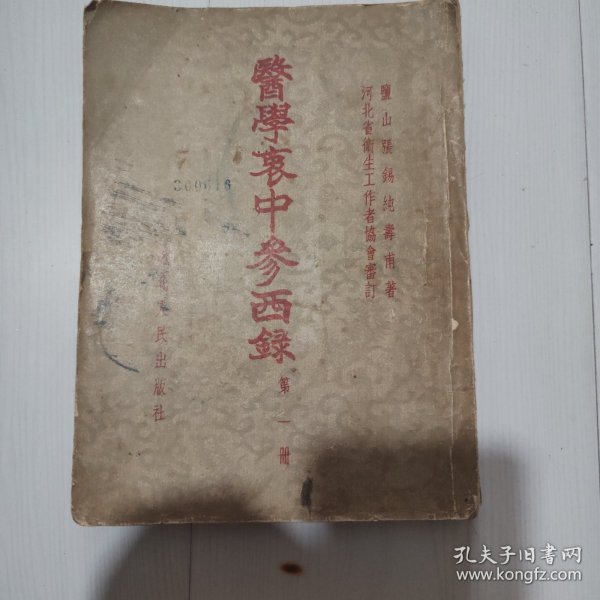 鹽山張錫純壽甫著
河北省衛生工作者協會審訂
醫學衷中參西録
第一册
300616
北人民出版社
孔夫子旧书网
www.kongfz.com